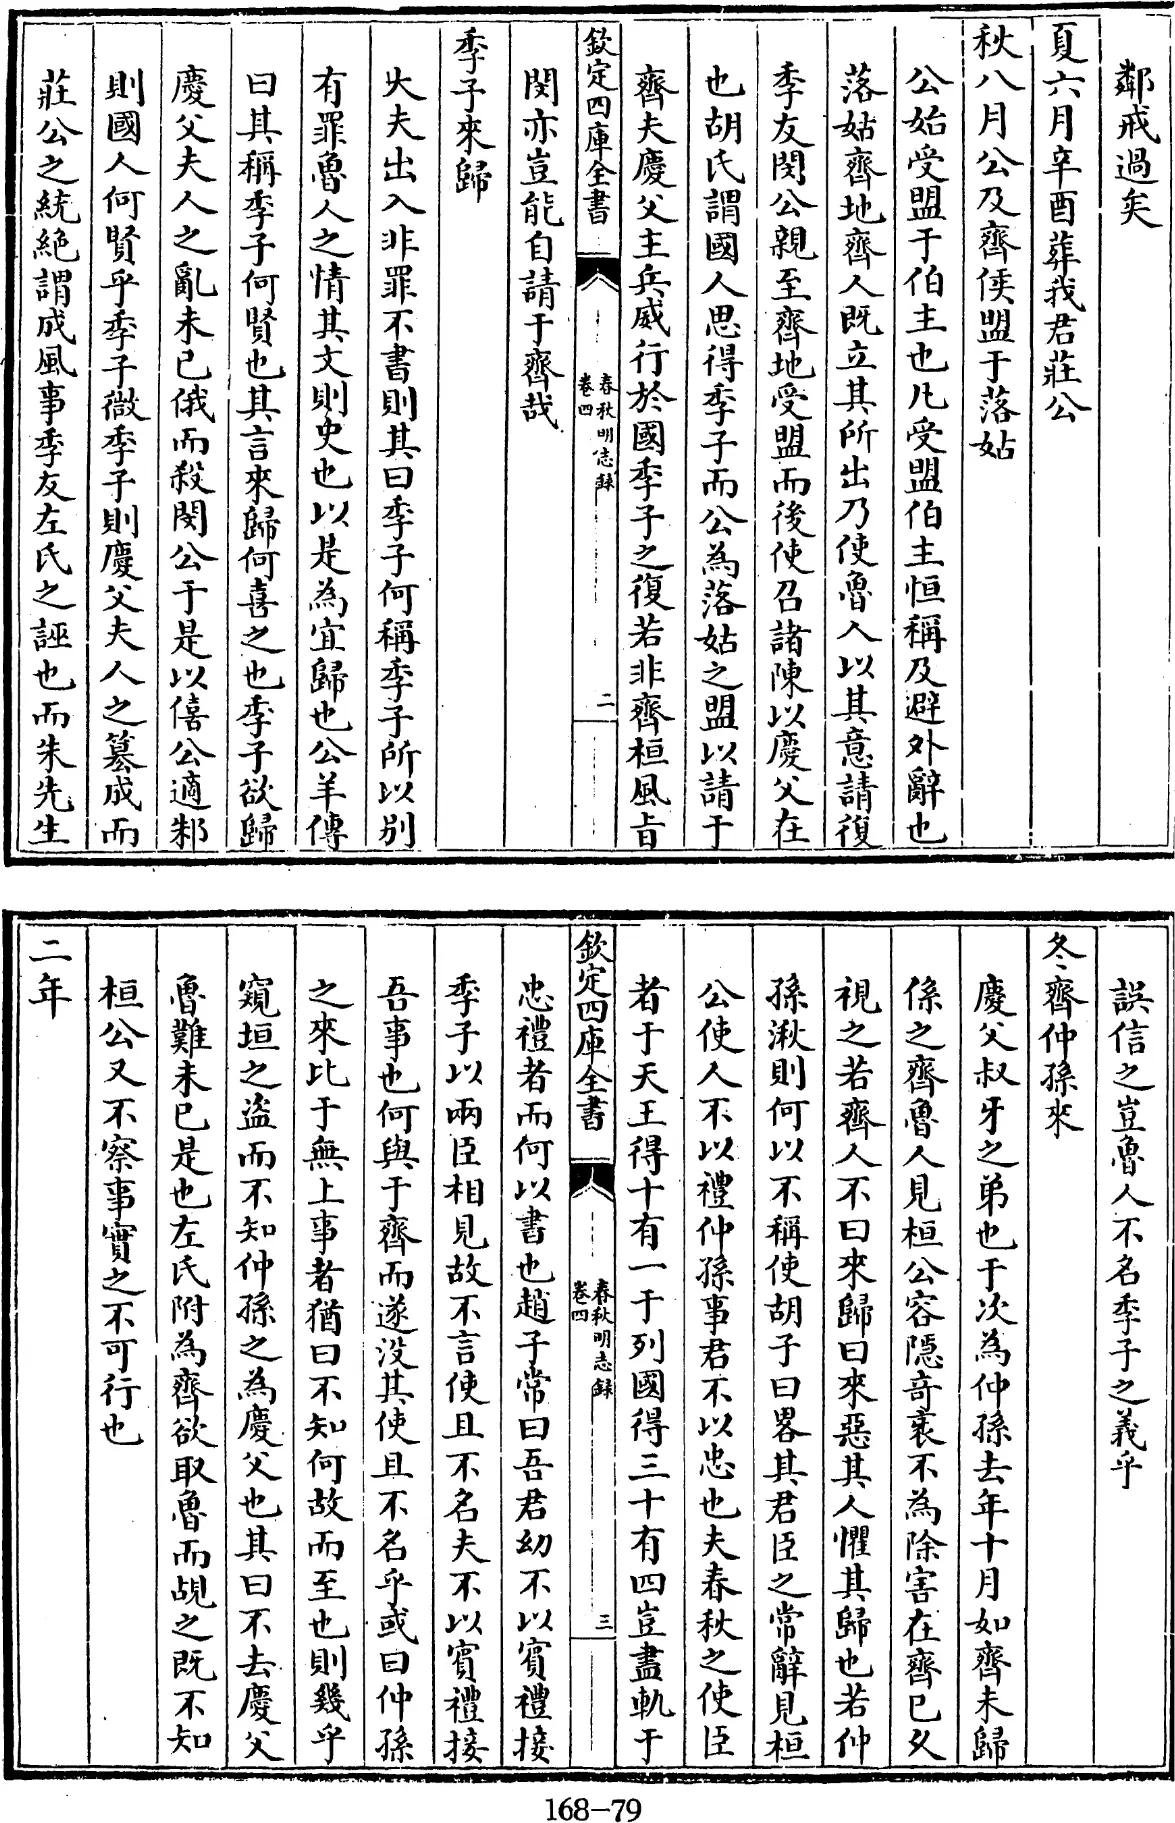 鄰戒過矣
夏六月辛酉葬我君莊公
秋八月公及齊侯盟于落姑
公始受盟于伯主也凡受盟伯主恒稱及避外辭也
落姑齊地齊人既立其所出乃使魯人以其意請復
季友閔公親至齊地受盟而後使召諸陳以慶父在
也胡氏謂國人思得季子而公為落姑之盟以請于
齊夫慶父主兵威行於國季子之復若非齊桓風旨
欽定四庫全書
春秋明志録
卷四
二
閔亦豈能自請于齊哉
季子來歸
大夫出入非罪不書則其曰季子何稱季子所以别
有罪魯人之情其文則史也以是為宜歸也公羊傳
曰其稱季子何賢也其言來歸何喜之也季子欲歸
慶父夫人之亂未已俄而殺閔公于是以僖公適邾
則國人何賢乎季子微季子則慶父夫人之簒成而
莊公之統絶謂成風事季友左氏之誣也而朱先生
誤信之豈魯人不名季子之義乎
冬齊仲孫來
慶父叔牙之弟也于次為仲孫去年十月如齊未歸
係之齊魯人見桓公容隠竒衺不為除害在齊已久
視之若齊人不曰來歸曰來惡其人懼其歸也若仲
孫湫則何以不稱使胡子曰畧其君臣之常辭見桓
公使人不以禮仲孫事君不以忠也夫春秋之使臣
者于天王得十有一于列國得三十有四豈盡軌于
欽定四庫全書
春秋明志録
卷四
三
忠禮者而何以書也趙子常曰吾君幼不以賓禮接
季子以兩臣相見故不言使且不名夫不以賓禮接
吾事也何與于齊而遂没其使且不名乎或曰仲孫
之來比于無上事者猶曰不知何故而至也則幾乎
窺垣之盜而不知仲孫之為慶父也其曰不去慶父
魯難未已是也左氏附為齊欲取魯而覘之既不知
桓公又不察事實之不可行也
二年
168-79